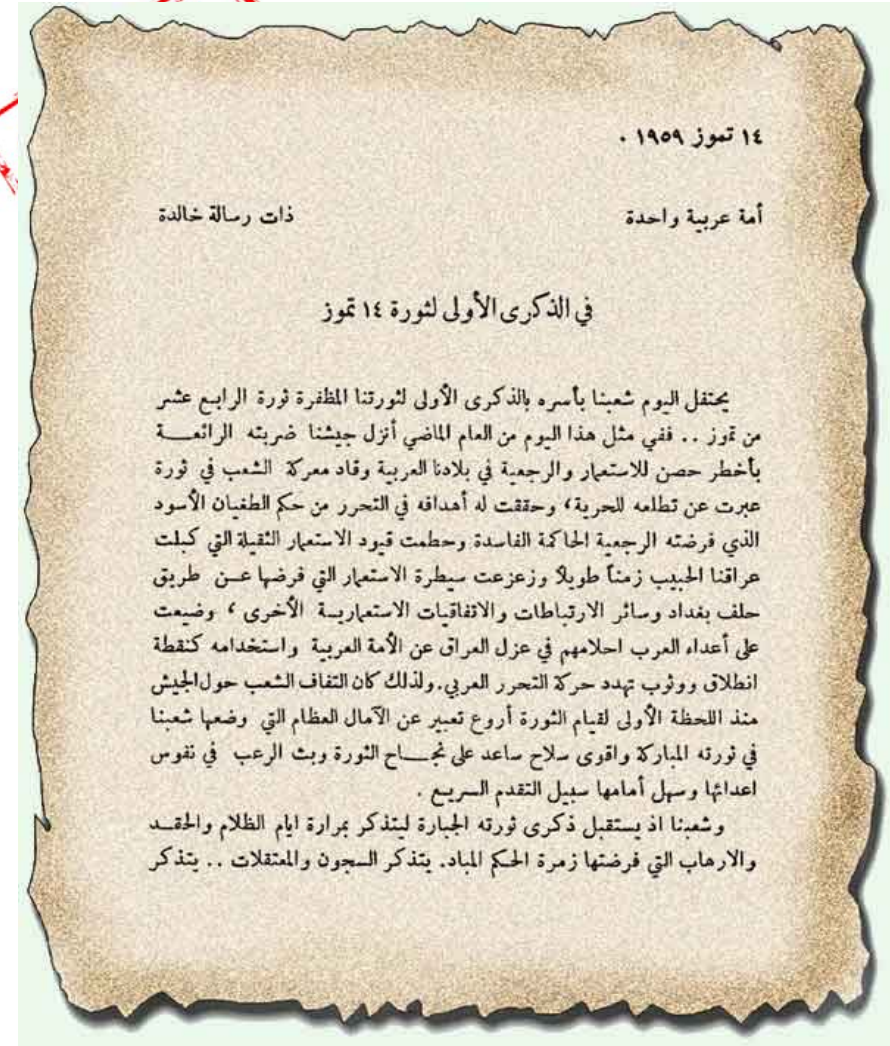 ١٤ تموز ١٩٥٩ .
أمة عربية واحدة ذات رسالة خالدة
في الذكرى الأولى لثورة ١٤ تموز
يحتفل اليوم شعبنا بأسره بالذكرى الأولى لثورتنا المظفرة ثورة الرابع عشر
من تموز .. ففي مثل هذا اليوم من العام الماضي أنزل جيشنا ضربته الرائعة
بأخطر حصن للاستعمار والرجعية في بلادنا العربية وقاد معركة الشعب في ثورة
عبرت عن تطلعه للحرية، وحققت له أهدافه في التحرر من حكم الطغيان الأسود
الذي فرضته الرجعية الحاكمة الفاسدة وحطمت قيود الاستعمار الثقيلة التي كبلت
عراقنا الحبيب زمناً طويلاً وزعزعت سيطرة الاستعمار التي فرضها عن طريق
حلف بغداد وسائر الارتباطات والاتفاقيات الاستعمارية الأخرى ، وضيعت
على أعداء العرب احلامهم في عزل العراق عن الأمة العربية واستخدامه كنقطة
انطلاق ووثوب تهدد حركة التحرر العربي. ولذلك كان التفاف الشعب حول الجيش
منذ اللحظة الأولى لقيام الثورة أروع تعبير عن الآمال العظام التي وضعها شعبنا
في ثورته المباركة واقوى سلاح ساعد على نجاح الثورة وبث الرعب في نفوس
اعدائها وسهل أمامها سبيل التقدم السريع .
وشعبنا اذ يستقبل ذكرى ثورته الجبارة ليتذكر بمرارة ايام الظلام والحقد
والارهاب التي فرضتها زمرة الحكم المباد. يتذكر السجون والمعتقلات .. يتذكر